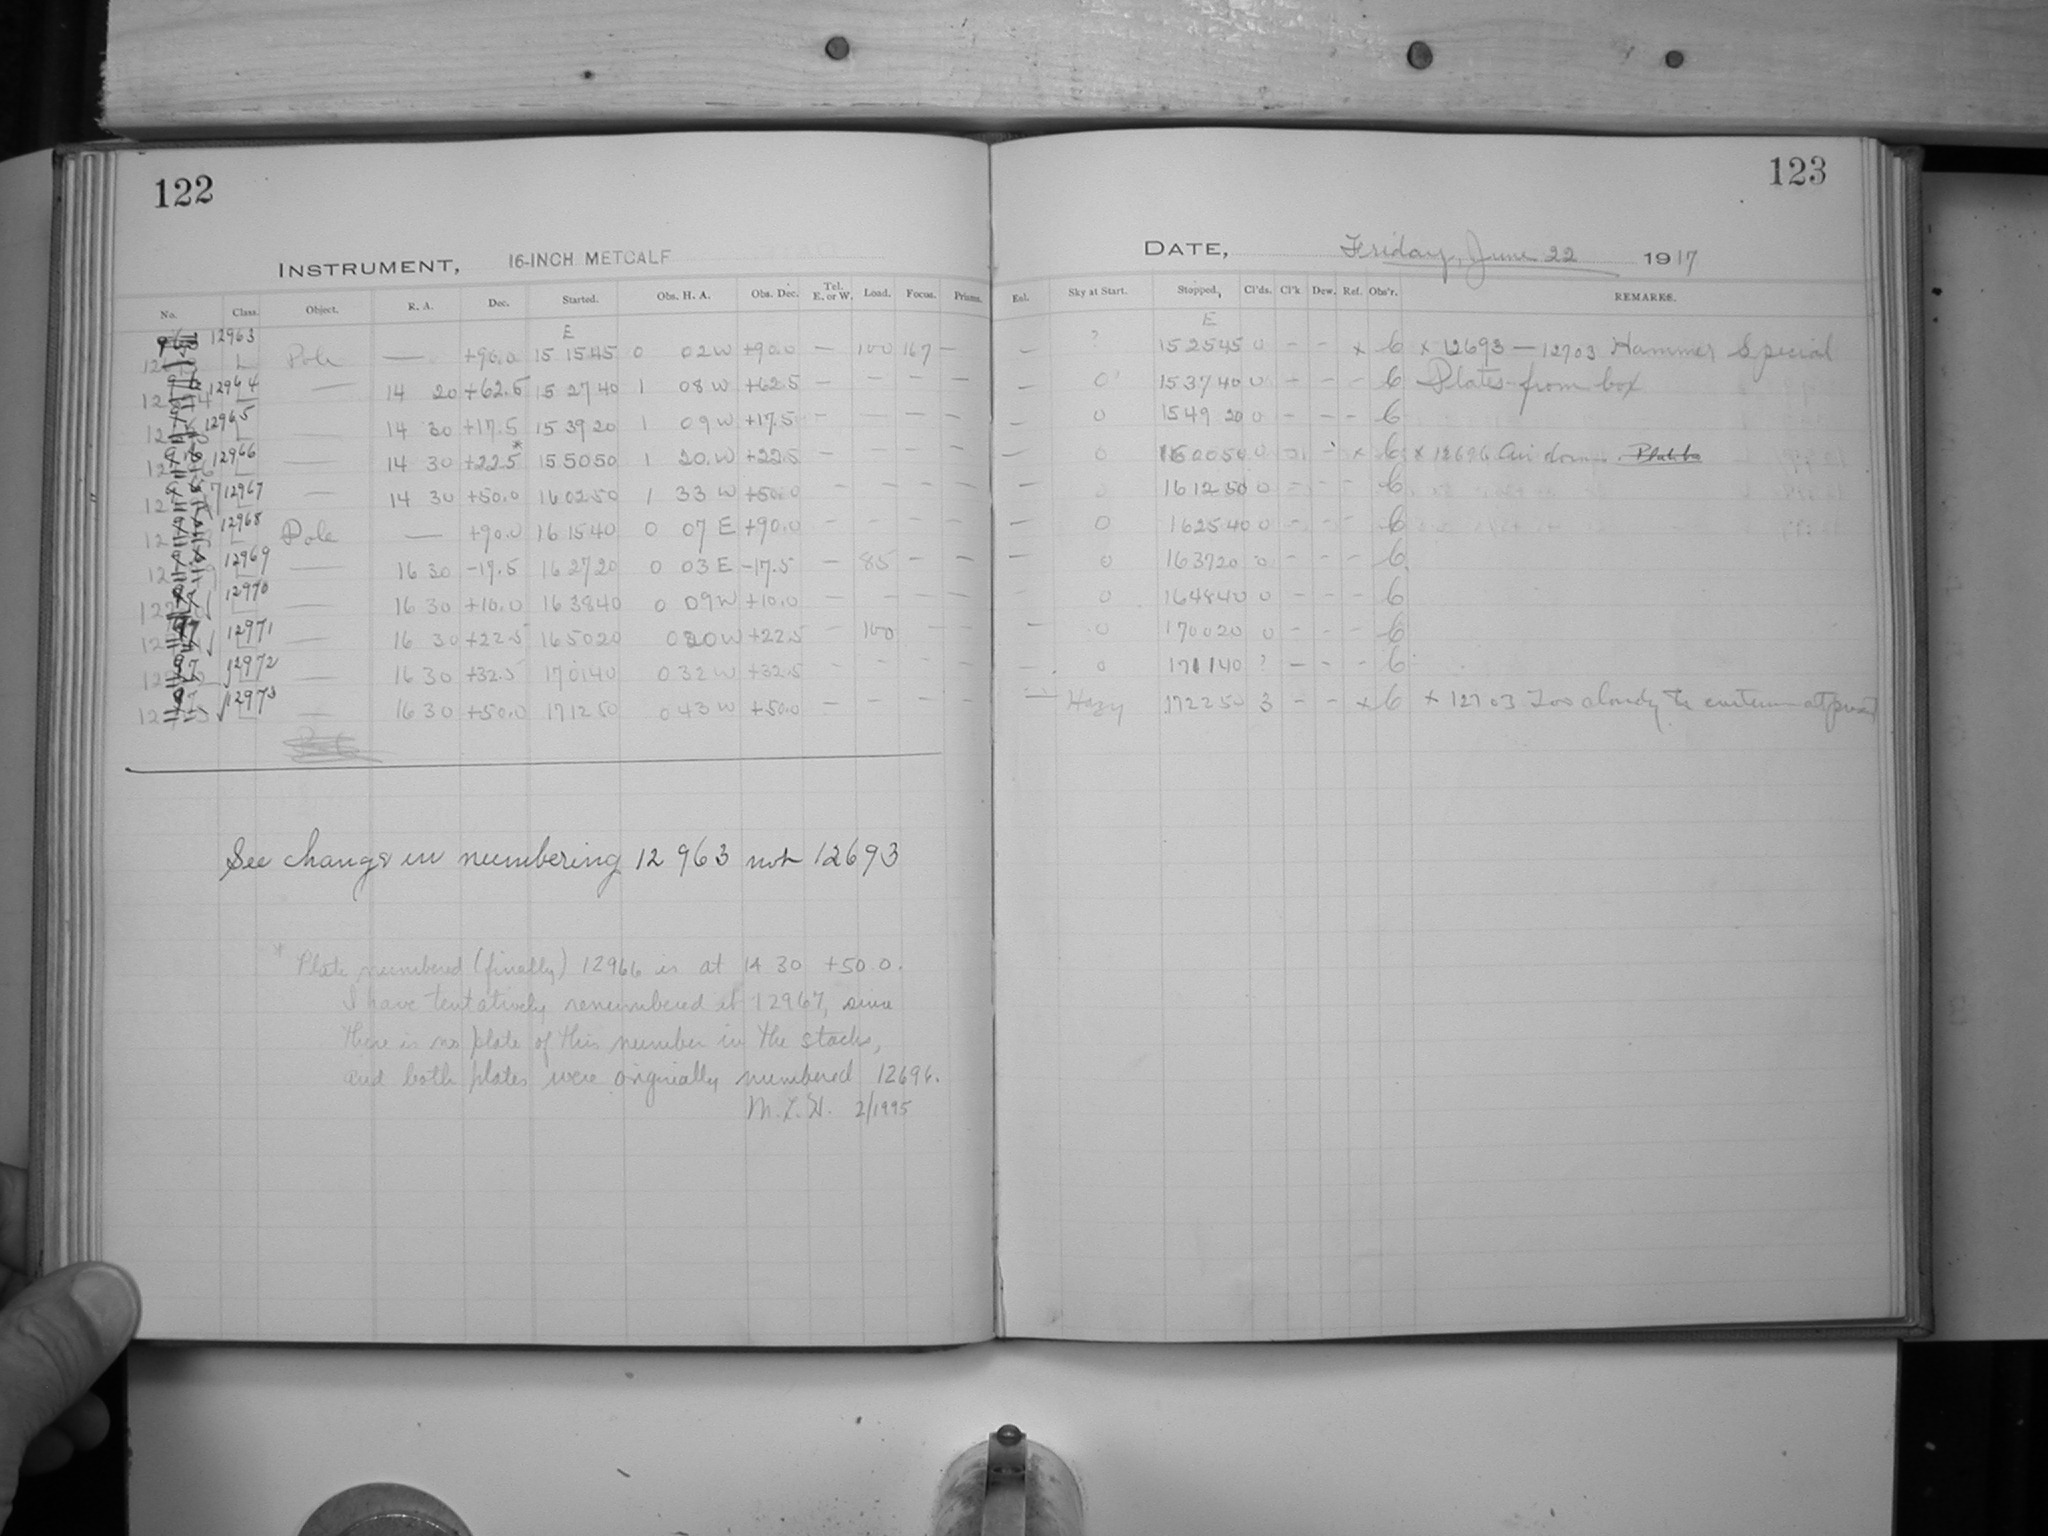 122
INSTRUMENT, 16-INCH METCALF
No. Class. Object. R. A. Dec. Started. Obs. H. A. Obs. Dec. Tel. E. or W. Load. Focus. Prisms.
E
12963 L Pole — +90.0 15 15 45 0 02 W +90.0 — 100 167 —
12964 L — 14 20 +62.5 15 27 40 1 08 W +62.5 — — — —
12965 L — 14 30 +17.5 15 39 20 1 09 W +17.5 — — — —
12966 L — 14 30 +22.5* 15 50 50 1 20 W +22.5 — — — —
12967 — 14 30 +50.0 16 02 50 1 33 W +50.0 — — — —
12968 L Pole — +90.0 16 15 40 0 07 E +90.0 — — — —
12969 L — 16 30 -17.5 16 27 20 0 03 E -17.5 — 85 — —
12970 L — 16 30 +10.0 16 38 40 0 09 W +10.0 — — — —
12971 L — 16 30 +22.5 16 50 20 0 20 W +22.5 — 100 — —
12972 L — 16 30 +32.5 17 01 40 0 32 W +32.5 — — — —
12973 L — 16 30 +50.0 17 12 50 0 43 W +50.0 — — — —
See change in numbering 12963 not 12693
* Plate numbered (finally) 12966 is at 14 30 +50.0.
I have tentatively renumbered it 12967, since
there is no plate of this number in the stacks,
and both plates were originally numbered 12696.
M.L.H. 2/1995
123
DATE, Friday, June 22 1917
Eol. Sky at Start. Stopped, Cl'ds. Cl'k Dew. Ref. Obs'r. REMARKS.
E
— ? 15 25 45 0 — — x 6 x 12693 — 12703 Hammer Special
— 0 15 37 40 0 — — — 6 Plates from box
— 0 15 49 20 0 — — — 6
— 0 16 00 50 0 — — x 6 x 12696 Air dome
— 0 16 12 50 0 — — — 6
— 0 16 25 40 0 — — — 6
— 0 16 37 20 0 — — — 6
— 0 16 48 40 0 — — — 6
— 0 17 00 20 0 — — — 6
— 0 17 11 40 ? — — — 6
— Hazy 17 22 50 3 — — x 6 x 12703 Too cloudy to continue at